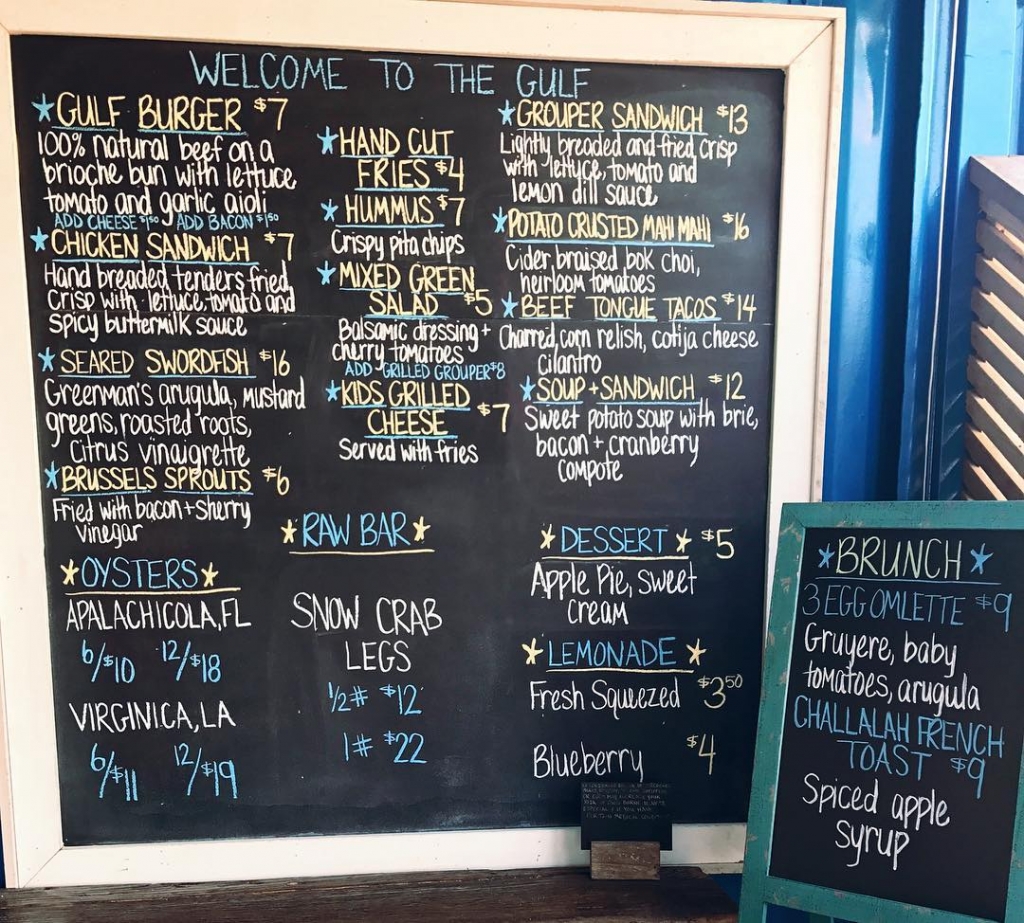 WELCOME TO THE GULF
GULF BURGER $7
100% natural beef on a
brioche bun with lettuce,
tomato and garlic aioli
ADD CHEESE $1.50 ADD BACON $1.50
CHICKEN SANDWICH $7
Hand breaded tenders fried,
crisp with lettuce, tomato and
spicy buttermilk sauce
SEARED SWORDFISH $16
Greenman's arugula, mustard
greens, roasted roots,
Citrus vinaigrette
BRUSSELS SPROUTS $6
Fried with bacon + sherry
vinegar
OYSTERS
APALACHICOLA, FL
6/$10 12/$18
VIRGINICA, LA
6/$11 12/$19
HAND CUT
FRIES $4
HUMMUS $7
Crispy pita chips
MIXED GREEN
SALAD $5
Balsamic dressing +
cherry tomatoes
ADD GRILLED GROUPER $8
KIDS GRILLED
CHEESE $7
Served with fries
RAW BAR
SNOW CRAB
LEGS
1/2# $12
1# $22
GROUPER SANDWICH $13
Lightly breaded and fried, crisp
with lettuce, tomato and
lemon dill sauce
POTATO CRUSTED MAHI MAHI $16
Cider braised bok choi,
heirloom tomatoes
BEEF TONGUE TACOS $14
Charred corn relish, cotija cheese
cilantro
SOUP + SANDWICH $12
Sweet potato soup with brie,
bacon + cranberry
compote
DESSERT $5
Apple Pie, sweet
cream
LEMONADE
Fresh Squeezed $3.50
Blueberry $4
BRUNCH
3 EGG OMLETTE $9
Gruyere, baby
tomatoes, arugula
CHALLALAH FRENCH
TOAST $9
Spiced apple
syrup